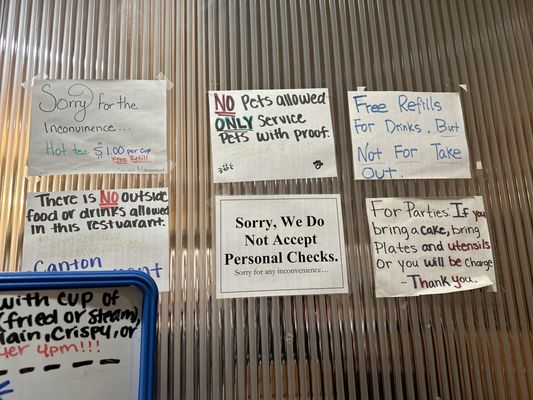 Sorry For the
Inconvinence...
Hot tea $1.00 per cup
Free Refill
NO Pets allowed
ONLY Service
Pets with proof.
Free Refills
For Drinks, But
Not For Take
Out.
There is NO outside
food or drinks allowed
in this restuarant.
Canton
Sorry, We Do
Not Accept
Personal Checks.
Sorry for any inconvenience...
For Parties: If you
bring a cake, bring
Plates and utensils
Or you will be charge
- Thank you.
with cup of
(fried or steam),
lain, Crispy, or
4pm!!!